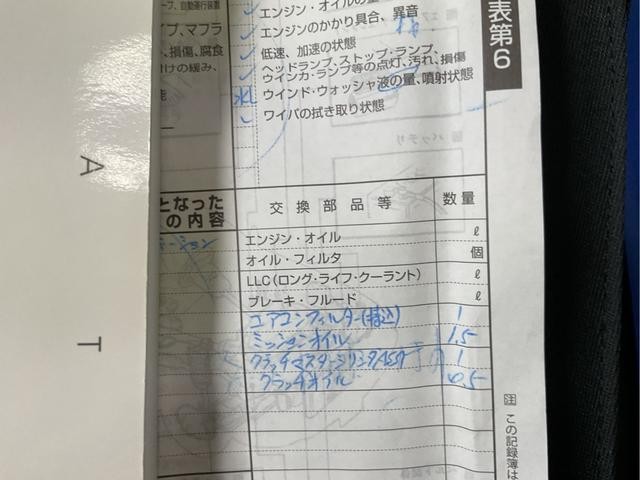 プ、自動運行装置
イプ、マフラ
、損傷、腐食
付けの緩み、
能
エンジン・オイルの量
エンジンのかかり具合、異音
低速、加速の状態
ヘッドランプ、ストップ・ランプ、
ウインカ・ランプ等の点灯、汚れ、損傷
ウインド・ウォッシャ液の量、噴射状態
ワイパの拭き取り状態
表第6
バッテリ
A
T
となった
の内容
交換部品等 数量
エンジン・オイル ℓ
オイル・フィルタ 個
LLC(ロング・ライフ・クーラント) ℓ
ブレーキ・フルード ℓ
エアコンフィルター(持込) 1
ミッションオイル 1.5
クラッチマスターシリンダASSY 1
クラッチオイル 0.5
注 この記録簿は